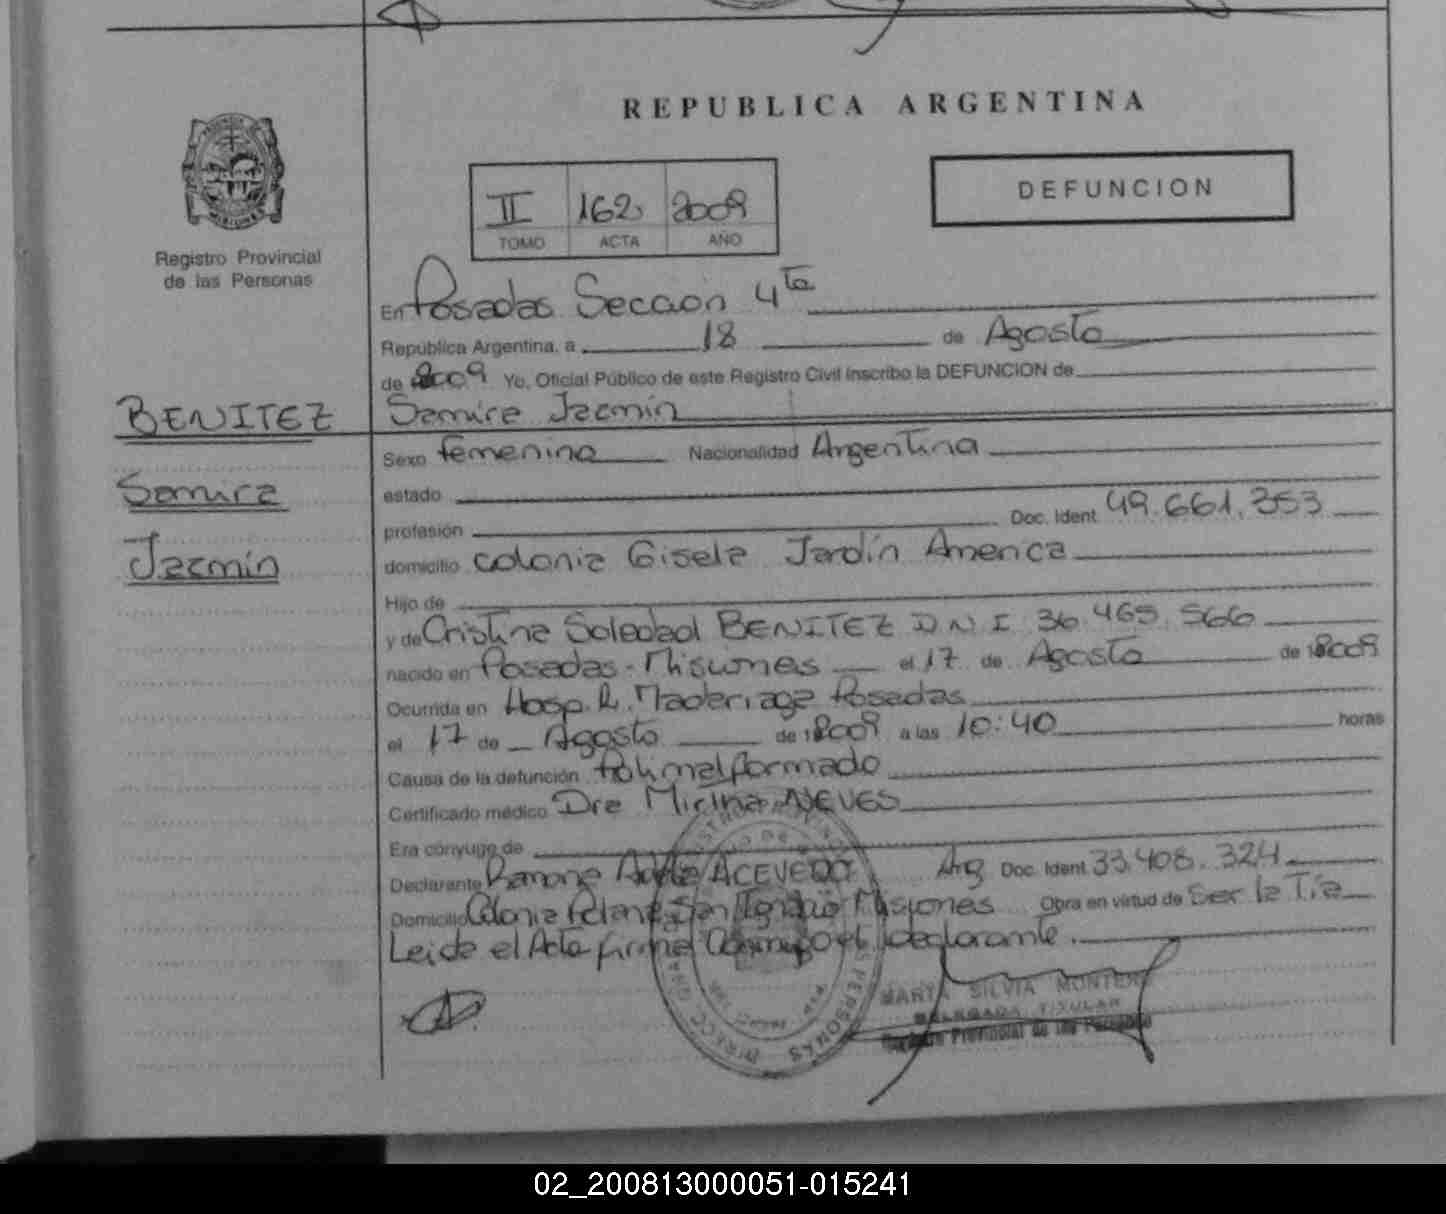 REPUBLICA ARGENTINA
II 162 2009
TOMO ACTA AÑO
DEFUNCION
Registro Provincial
de las Personas
En Posadas Sección 4ta
República Argentina, a 18 de Agosto
de 2009 Yo, Oficial Público de este Registro Civil inscribo la DEFUNCION de
BENITEZ Samira Jazmín
Samira
Jazmín
Sexo femenino Nacionalidad Argentina
estado
profesión Doc. Ident. 49.661.353
domicilio colonia Gisela Jardín America
Hijo de
y de Cristina Soledad BENITEZ D N I 36.465.566
nacido en Posadas-Misiones el 17 de Agosto de 2009
Ocurrida en Hosp. R. Madariaga Posadas
el 17 de Agosto de 2009 a las 10:40 horas
Causa de la defunción Polimalformado
Certificado médico Dra Mirtha NEVES
Era cónyuge de
Declarante Ramona ACEVEDO Arg Doc. Ident. 33.408.324
Domicilio Colonia San Ignacio Misiones Obra en virtud de Ser la Tía
Leida el Acta firma Conmigo el declarante.
MARTA SILVIA MONTERO
DELEGADA TITULAR
Registro Provincial de las Personas
02_200813000051-015241